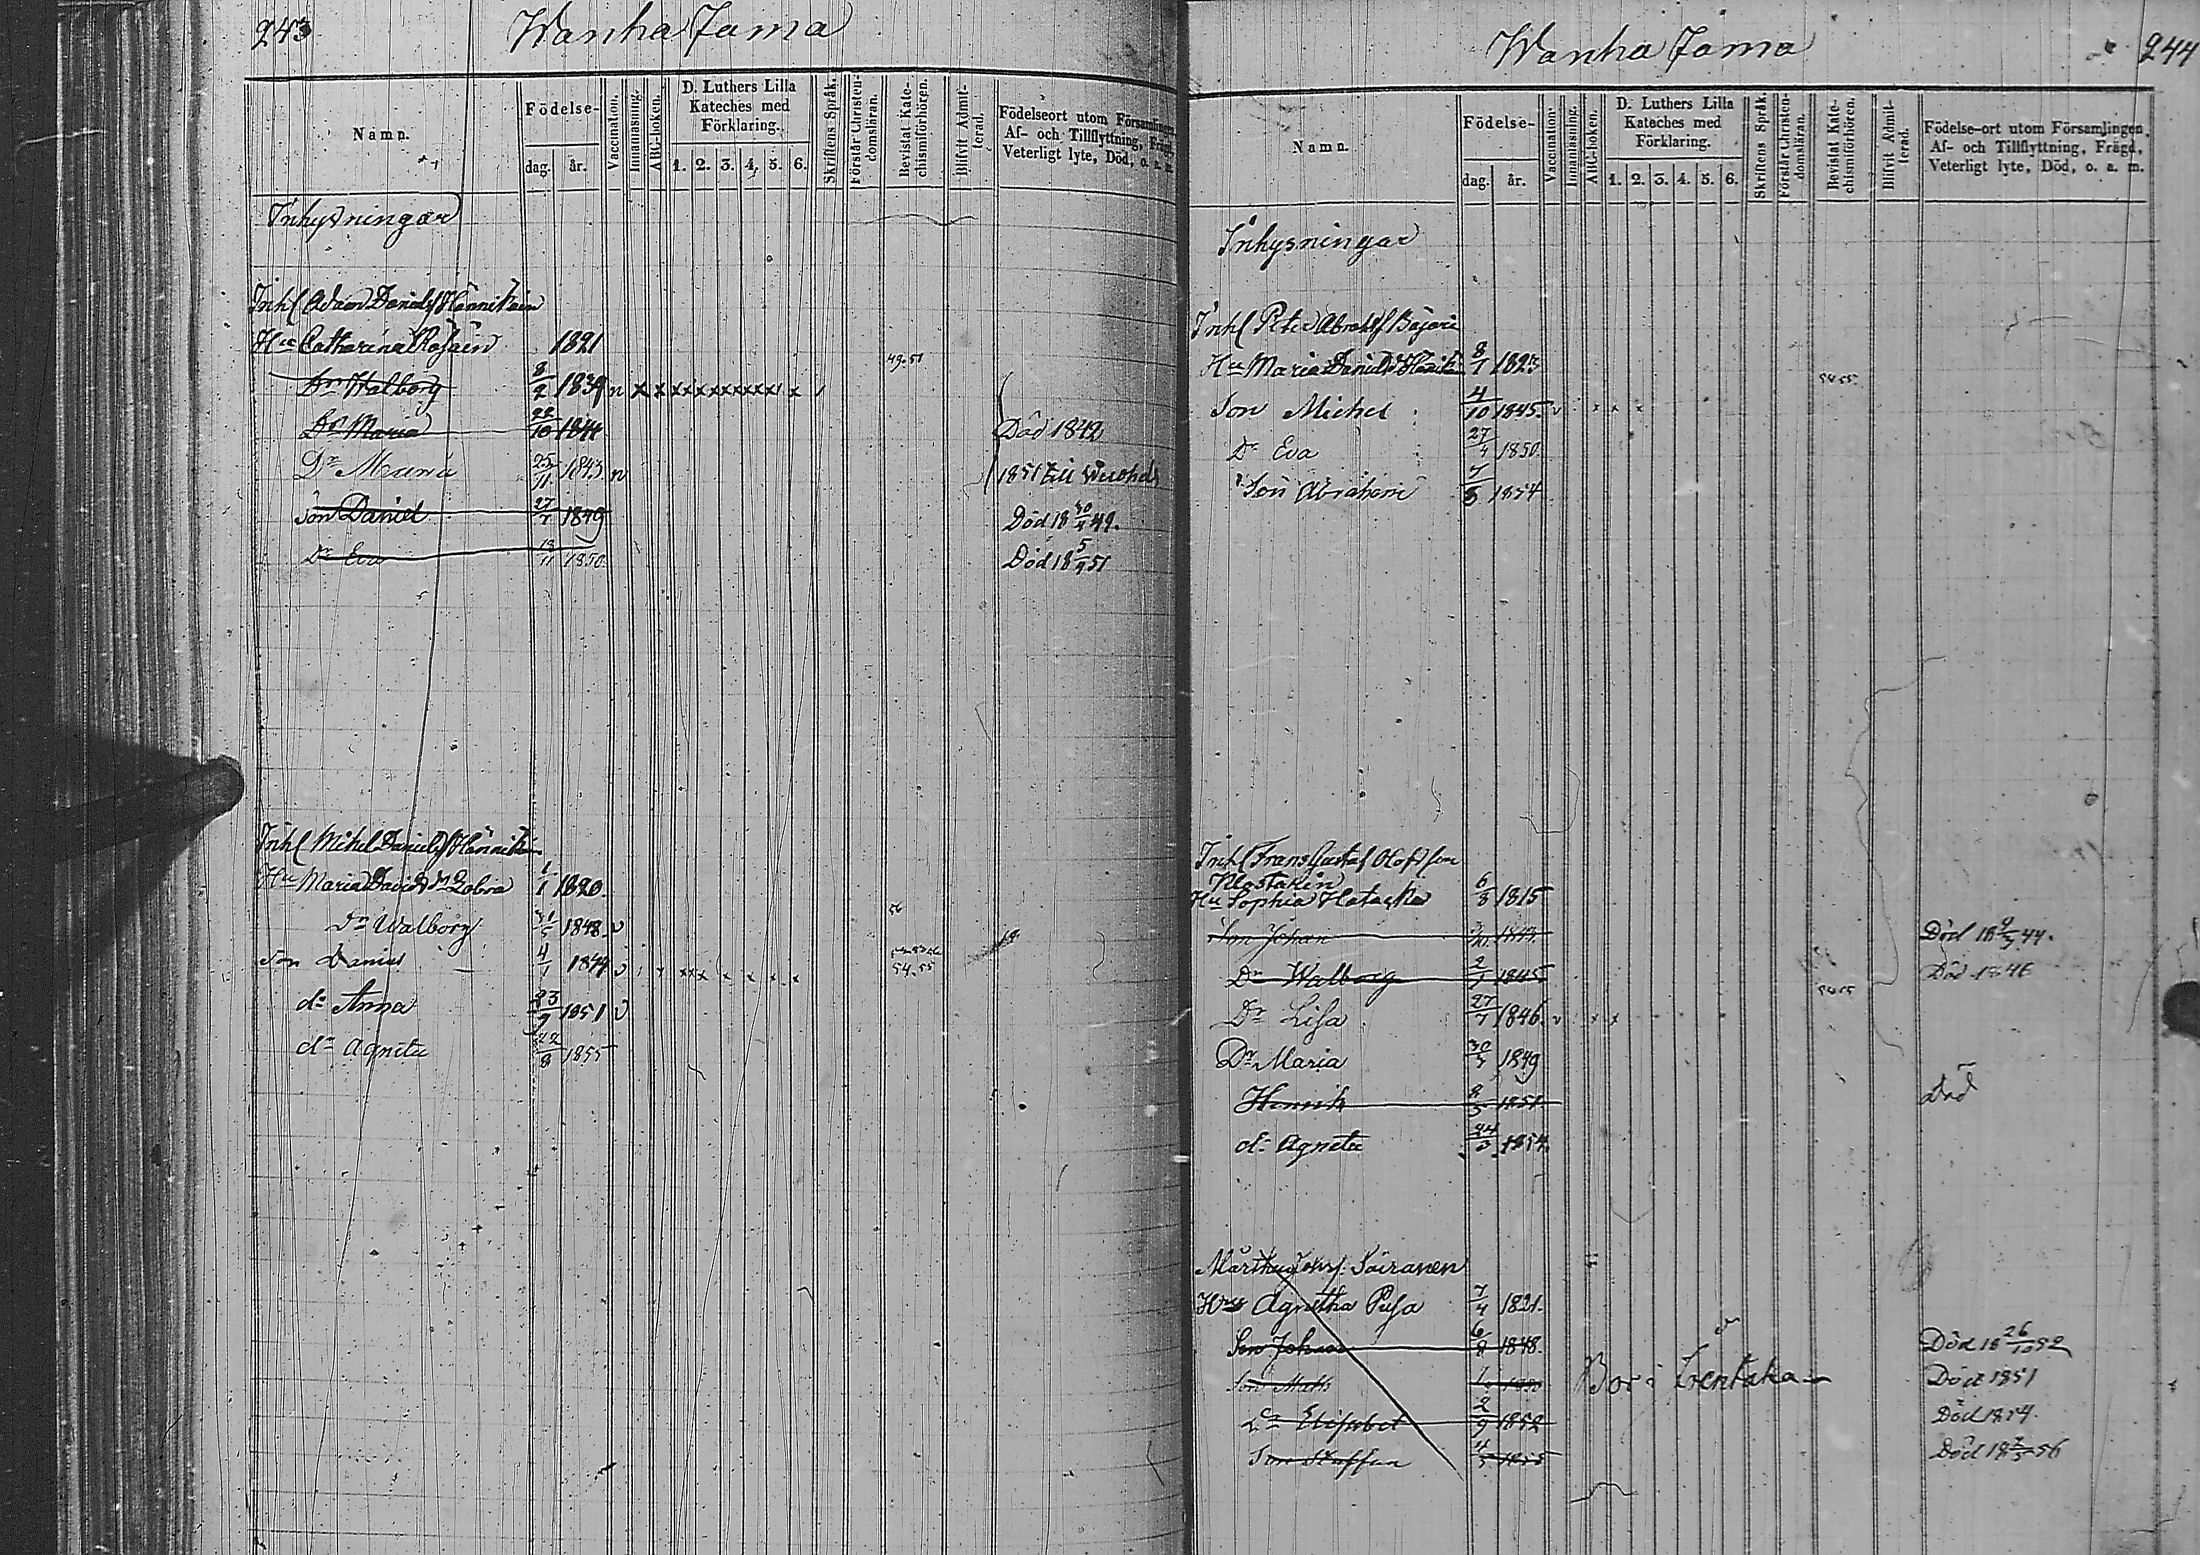 243
Wanha Jama
Namn.
Födelse-
dag. år.
Vaccination.
Innanläsning.
ABC-boken.
D. Luthers Lilla
Kateches med
Förklaring.
1. 2. 3. 4. 5. 6.
Skriftens Språk.
Förstår Christen-
domsläran.
Bevistat Kate-
chismiförhören.
Blifvit Admit-
terad.
Födelseort utom Församlingen,
Af- och Tillflyttning, Frägd,
Veterligt lyte, Död, o. a. m.
Inhysningar
Inhl Adam Daniels Hännikäin
Hu Catharina 1821
49.51
Dr Walborg 8/2 1839 n x x x x x x x x x x x x
Dr Maria 22/10 1841 Död 1842
Dr Maria 25/11 1843 n 1851 till
Son Daniel 27/7 1849 Död 18 30/7 49.
Dr Eva 13/11 1850 Död 18 5/4 51
Inhl Mikel Daniels Hännikäin
Hu Maria Davids dr 1/1 1820.
56
Dr Walborg 31/5 1848. v
Son Daniel 4/1 1844 v x x x x x x x x 54.55
dr Anna 23/9 1851 v
dr Agneta 22/8 1855
Wanha Jama
244
Namn.
Födelse-
dag. år.
Vaccination.
Innanläsning.
ABC-boken.
D. Luthers Lilla
Kateches med
Förklaring.
1. 2. 3. 4. 5. 6.
Skriftens Språk.
Förstår Christen-
domsläran.
Bevistat Kate-
chismiförhören.
Blifvit Admit-
terad.
Födelse-ort utom Församlingen,
Af- och Tillflyttning, Frägd,
Veterligt lyte, Död, o. a. m.
Inhysningar
Inhl Peter Abrahs Bajari
Hu Maria Daniels dr 8/7 1823
54 55
Son Michel 4/10 1845 v x x x
Dr Eva 27/4 1850
Son Abraham 7/5 1854
Inhl Frans Gustaf Olofsson
Hu Sophia Hatacka 6/3 1815
Son Johan 1843 Död 18 44.
Dr Walborg 2/1 1845 Död 1846
54 55
Dr Lisa 27/7 1846. v x x
Dr Maria 30/7 1849
Henrik 8/5 1851 Död
dr Agneta 24/3 1854.
Mårthen Johs. Soiranen
Hus Agnetha Pusa 7/4 1821.
Son Johan 6/8 1848. Död 18 26/10 52
Son Math 1850 Bor i Död 1851
Dr Elisabet 2/9 1852 Död 1854.
Son Staffan 4/5 1855 Död 18 56